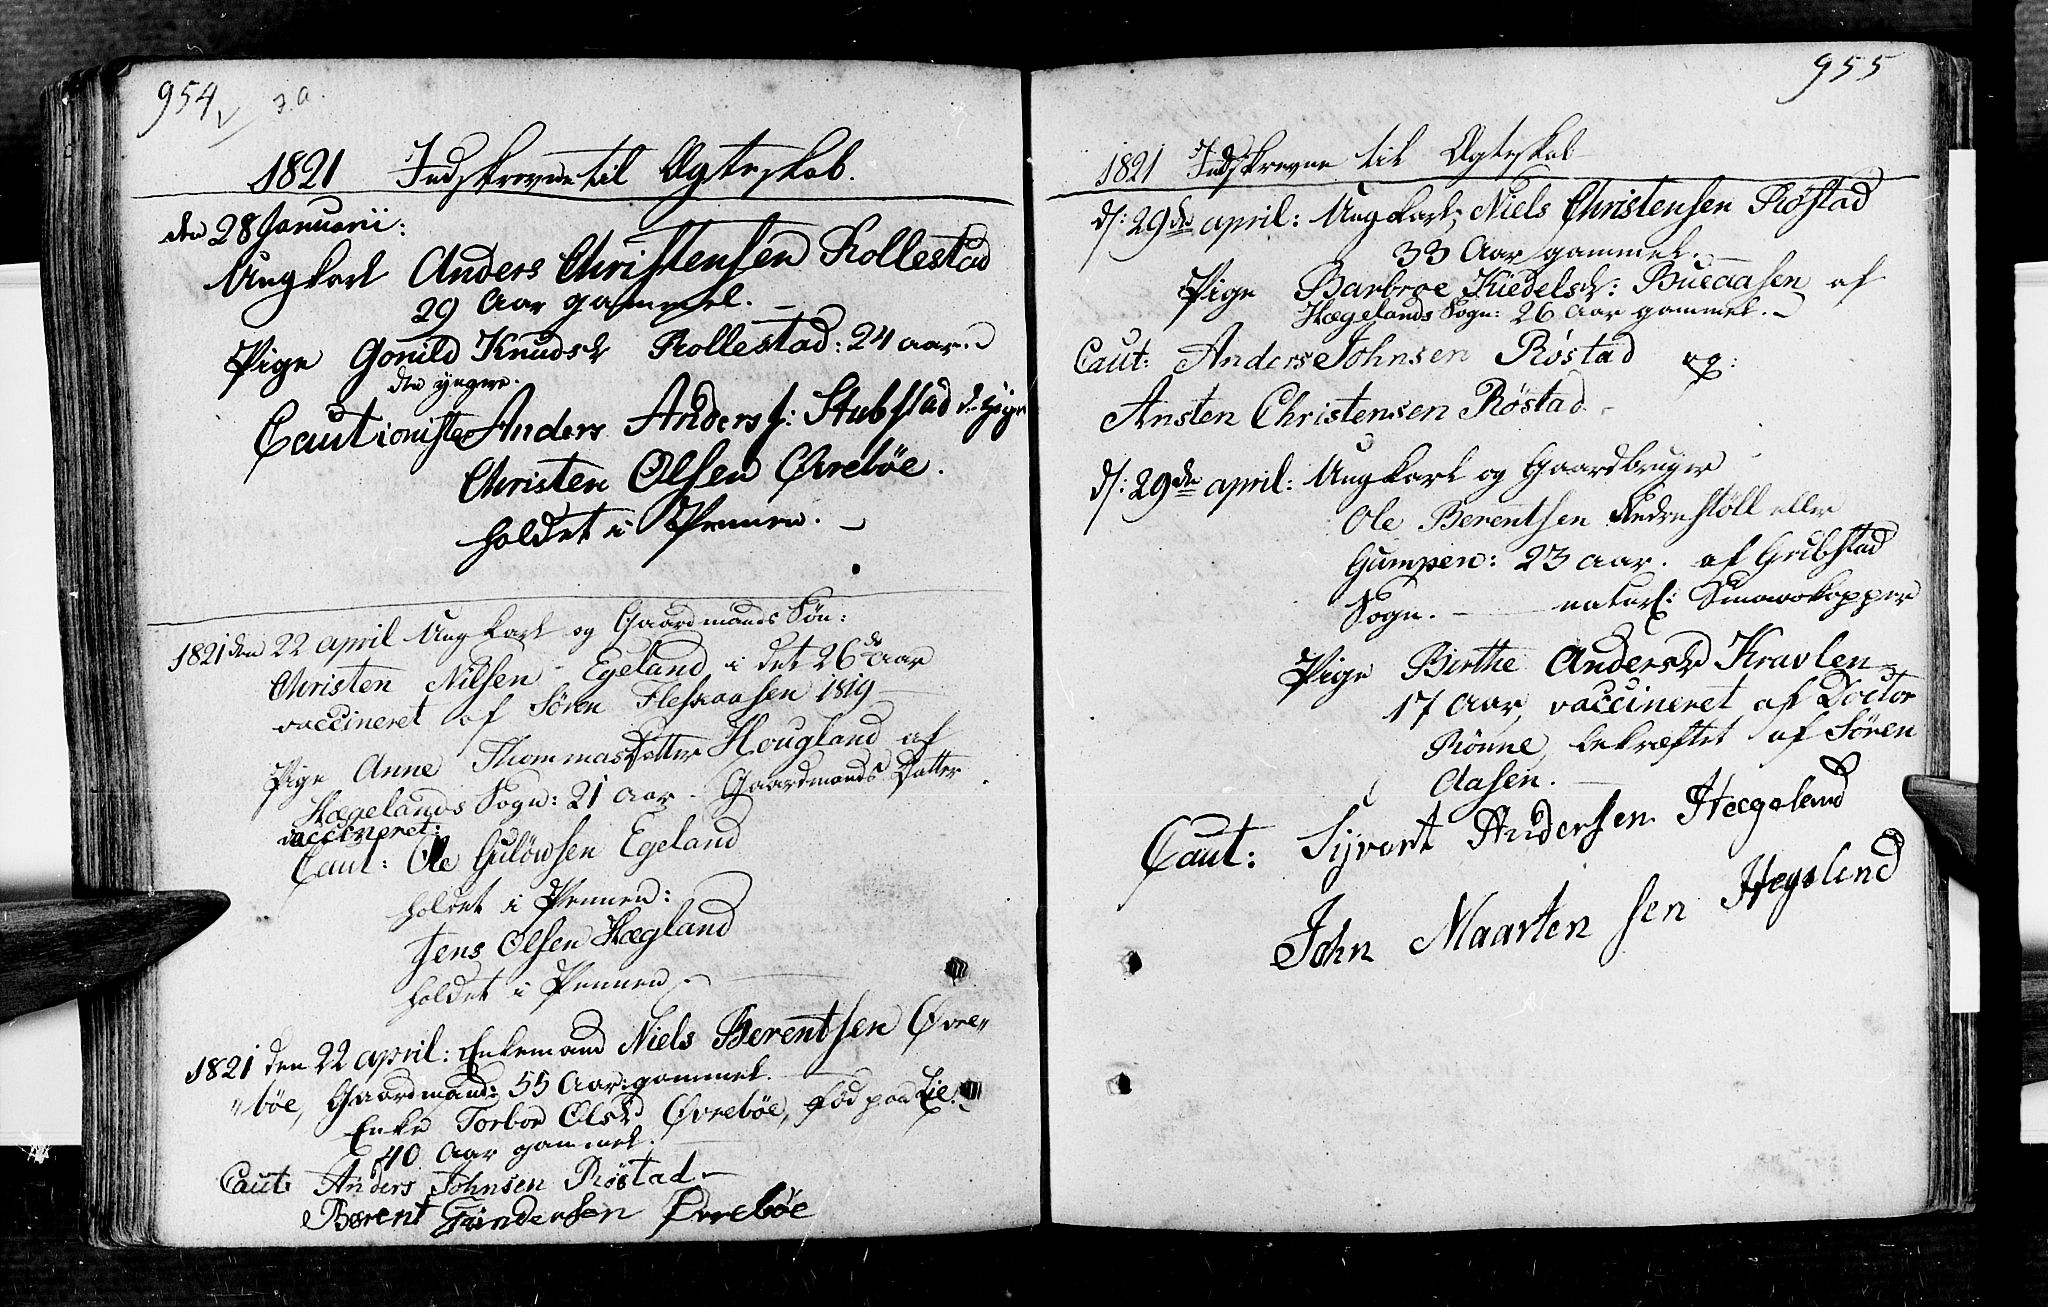 954 7.a.
1821 Indskrevne til Ægteskab.
den 28 Januarii:
Ungkarl Anders Christensen Rollestad
29 Aar gammel. –
Pige Gonild Knudsdr Rollestad: 24 aar.
den yngre.
Cautionister Anders Anders s: Stubstad
Christen Olsen Øvrebøe.
holdet i Pennen. –
1821 den 22 april Ungkarl og Gaardmands Søn:
Christen Nilsen Egeland i det 26de Aar
vaccineret af Sören Flesaaasen 1819 –
Pige Anne Thommasdatter Hougland af
Hægelands Sogn: 21 Aar – Gaardmands Datter
vaccineret:
Caut: Ole Gulöwsen Egeland
holdet i Pennen:
Jens Olsen Hægland
holdet i Pennen –
1821 den 22 april: Enkemand Niels Berentsen Øvre„
„böe, Gaardmand: 55 Aar gammel. –
Enke Torbor Olsdr Øvrebøe, föd paa Lie.
40 Aar gammel. –
Caut: Anders Johnsen Röstad –
Berent Øvrebøe
955
1821 Indskrevne til Ægteskab
d: 29de april: Ungkarl, Niels Christensen Röstad
33 Aar gammel.
Pige Barbroe Kiedelsdr: Bueaasen af
Hægelands Sogn: 26 Aar gammel. –
Caut: Anders Johnsen Röstad og:
Ansten Christensen Röstad –
d: 29de april: Ungkarl og Gaardbruger
Ole Berentsen eller
Gumpen: 23 aar. af Gribstad
Sogn. – naturl: Smaaekopper
Pige Birthe Andersdr Kravlen –
17 Aar, vaccineret af Doctor
Rönne, bekræftet af Sören
Aasen. –
Caut: Sijvert Andersen Hægeland
John Maarten sen Hegelend